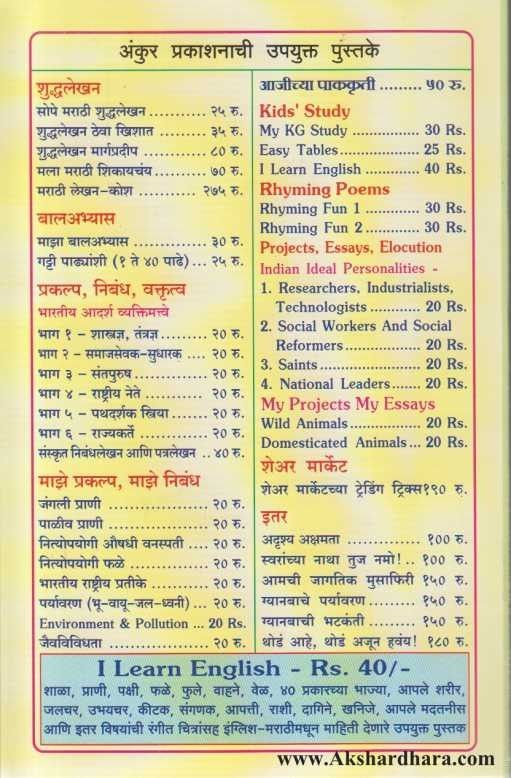 अंकुर प्रकाशनाची उपयुक्त पुस्तके
शुद्धलेखन
सोपे मराठी शुद्धलेखन ........... २५ रु.
शुद्धलेखन ठेवा खिशात ......... ३५ रु.
शुद्धलेखन मार्गप्रदीप ............ ८० रु.
मला मराठी शिकायचंय .......... ७० रु.
मराठी लेखन-कोश ............ २७५ रु.
बालअभ्यास
माझा बालअभ्यास .............. ३० रु.
गट्टी पाढ्यांशी (१ ते ४० पाढे) ... २५ रु.
प्रकल्प, निबंध, वक्तृत्व
भारतीय आदर्श व्यक्तिमत्त्वे
भाग १ - शास्त्रज्ञ, तंत्रज्ञ .......... २० रु.
भाग २ - समाजसेवक-सुधारक .... २० रु.
भाग ३ - संतपुरुष ................ २० रु.
भाग ४ - राष्ट्रीय नेते ............. २० रु.
भाग ५ - पथदर्शक स्त्रिया ......... २० रु.
भाग ६ - राज्यकर्ते ............... २० रु.
संस्कृत निबंधलेखन आणि पत्रलेखन .. ४० रु.
माझे प्रकल्प, माझे निबंध
जंगली प्राणी .................... २० रु.
पाळीव प्राणी .................... २० रु.
नित्योपयोगी औषधी वनस्पती .... २० रु.
नित्योपयोगी फळे ................ २० रु.
भारतीय राष्ट्रीय प्रतीके ........... २० रु.
पर्यावरण (भू-वायू-जल-ध्वनी) ... २० रु.
Environment & Pollution ... 20 Rs.
जैवविविधता .................... २० रु.
आजीच्या पाककृती ......... ५० रु.
Kids' Study
My KG Study .............. 30 Rs.
Easy Tables ................. 25 Rs.
I Learn English ........... 40 Rs.
Rhyming Poems
Rhyming Fun 1 ............ 30 Rs.
Rhyming Fun 2 ............ 30 Rs.
Projects, Essays, Elocution
Indian Ideal Personalities -
1. Researchers, Industrialists,
Technologists ............ 20 Rs.
2. Social Workers And Social
Reformers ................. 20 Rs.
3. Saints ...................... 20 Rs.
4. National Leaders....... 20 Rs.
My Projects My Essays
Wild Animals ................. 20 Rs.
Domesticated Animals ... 20 Rs.
शेअर मार्केट
शेअर मार्केटच्या ट्रेडिंग ट्रिक्स १९० रु.
इतर
अदृश्य अक्षमता ............. १०० रु.
स्वरांच्या नाथा तुज नमो! .. १०० रु.
आमची जागतिक मुसाफिरी १५० रु.
ग्यानबाचे पर्यावरण .......... १५० रु.
ग्यानबाची भटकंती .......... १५० रु.
थोडं आहे, थोडं अजून हवंय! १८० रु.
I Learn English - Rs. 40/-
शाळा, प्राणी, पक्षी, फळे, फुले, वाहने, वेळ, ४० प्रकारच्या भाज्या, आपले शरीर,
जलचर, उभयचर, कीटक, संगणक, आपत्ती, राशी, दागिने, खनिजे, आपले मदतनीस
आणि इतर विषयांची रंगीत चित्रांसह इंग्लिश-मराठीमधून माहिती देणारे उपयुक्त पुस्तक
www.Akshardhara.com